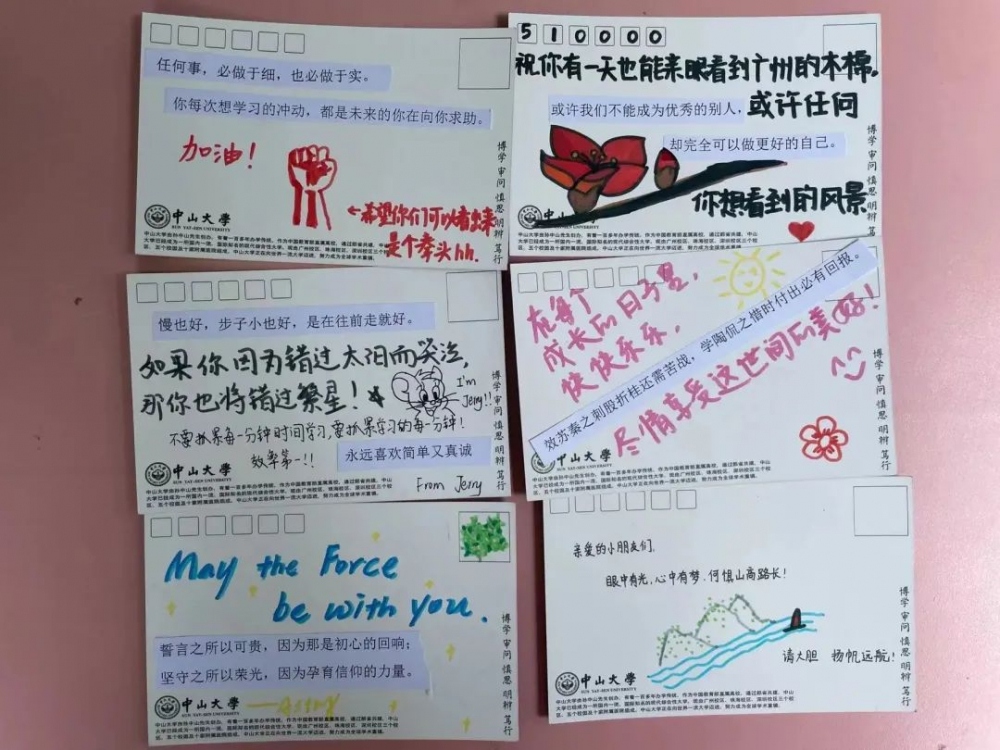 任何事，必做于细，也必做于实。
你每次想学习的冲动，都是未来的你在向你求助。
加油！
←希望你们可以看出来
是个拳头hh.
中山大學
SUN YAT-SEN UNIVERSITY
博学 审问 慎思 明辨 笃行
510000
祝你有一天也能亲眼看到广州的木棉。
或许我们不能成为优秀的别人，
或许任何
却完全可以做更好的自己。
你想看到的风景
中山大學
博学 审问 慎思 明辨 笃行
慢也好，步子小也好，是在往前走就好。
如果你因为错过太阳而哭泣，
那你也将错过繁星！
I'm
Jerry!!
不要抓紧每一分钟时间学习，要抓紧学习的每一分钟！
效率第一!!
永远喜欢简单又真诚
From Jerry
中山大學
SUN YAT-SEN UNIVERSITY
博学 审问 慎思 明辨 笃行
在每个
成长的日子里，
快快乐乐，
效苏秦之刺股折桂还需苦战，学陶侃之惜时付出必有回报。
尽情享受这世间的美好！
SUN YAT-SEN UNIVERSITY
博学 审问 慎思 明辨 笃行
May the Force
be with you.
誓言之所以可贵，因为那是初心的回响；
坚守之所以荣光，因为孕育信仰的力量。
中山大學
SUN YAT-SEN UNIVERSITY
博学 审问 慎思 明辨 笃行
亲爱的小朋友们，
眼中有光，心中有梦，何惧山高路长！
请大胆 扬帆远航！
中山大學
SUN YAT-SEN UNIVERSITY
博学 审问 慎思 明辨 笃行